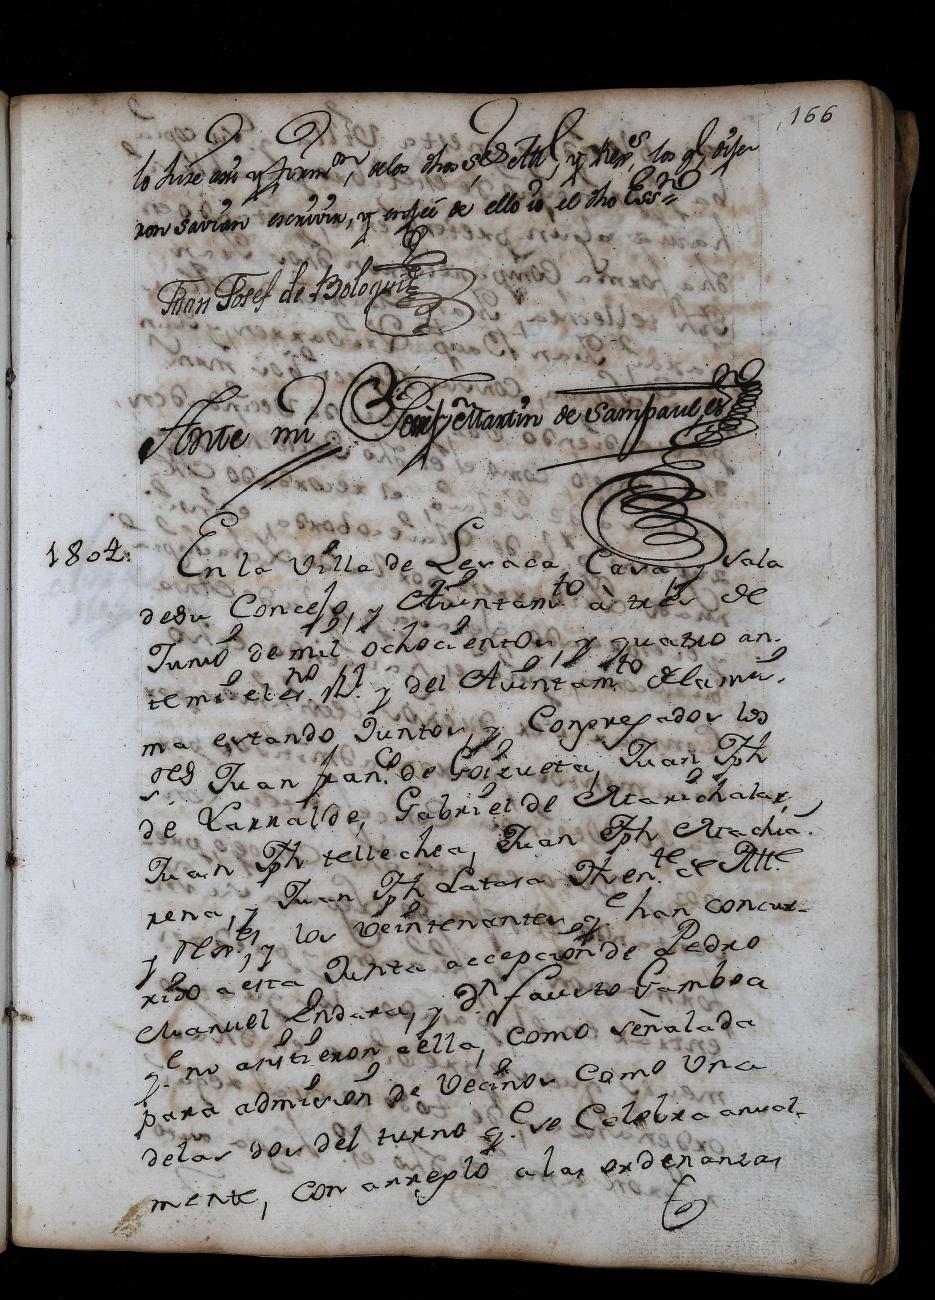 166
lo hize asi y firmon, de los dhos Ses Alld, y Rexs, los q dixe
ron savian escrivir, y en feé de ello io, el dho Essno
Juan Josef de Bologui
Ante mi Martin de Sampaul, es
1804.
En la Villa de Lesaca, Cassa, y sala
de su Concejo, y Aiuntamto à tres de
Junio de mil ochocientos, y quatro an-
te mi el esno Rl. y del Aiuntamto de la mis-
ma estando Juntos, y Congregados los
ses Juan Franco. de Goizueta, Juan Jph
de Larralde, Gabriel de Marichalar,
Juan Jph tellechea, Juan Jph Machia-
rena, y Juan Jph Latasa Thente. de Alle
y Rexs, y los veintenantes qe han concur-
rido a esta Junta accepcion de Pedro
Manuel Endara, y Dn Fausto Gamboa
qe no asistieron a ella, como señalada
para admision de Vecinos como Una
de las dos del turno qe se Celebra anual-
mente, con arreglo a las ordenanzas